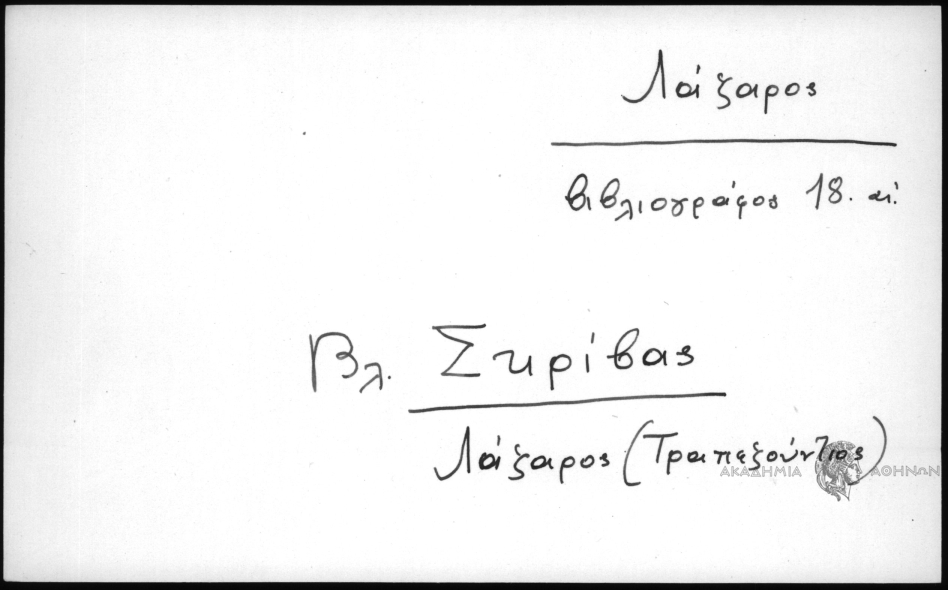 Λάζαρος
βιβλιογράφος 18. αἰ.
Βλ. Σκρίβας
Λάζαρος (Τραπεζούντιος)
ΑΚΑΔΗΜΙΑ ΑΘΗΝΩΝ